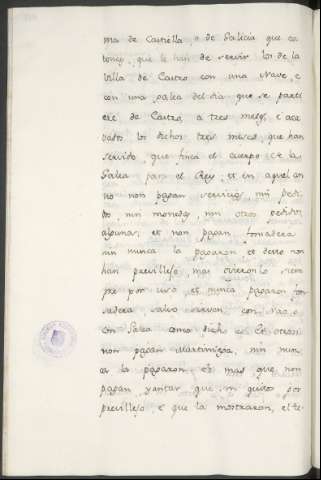 ma de Castiella, o de Galicia que en
tonce, que le han de servir los de la
Villa de Castro con una Nave, e
con una galea del dia que se parti
ere de Castro, a tres meses, e aca
bados los dichos tres meses, que han
servido, que finca el cuerpo de la
Galea para el Rey, et en aquel an
no non pagan servicios nin pedi
do, nin moneda, nin otros pedidos
algunos; et non pagan fonsadera
nin nunca la pagaron et desto non
han previllejo, mas ovieronlo siem
pre por uso, et nunca pagaron fon
sadera, salvo sirvan con Nao, o
con Galea como dicho es. Et otrosi
non pagan Martiniega, nin nun
ca la pagaron, et mas que non
pagan yantar que son quitos por
previllejo, e que la mostraron, el te-